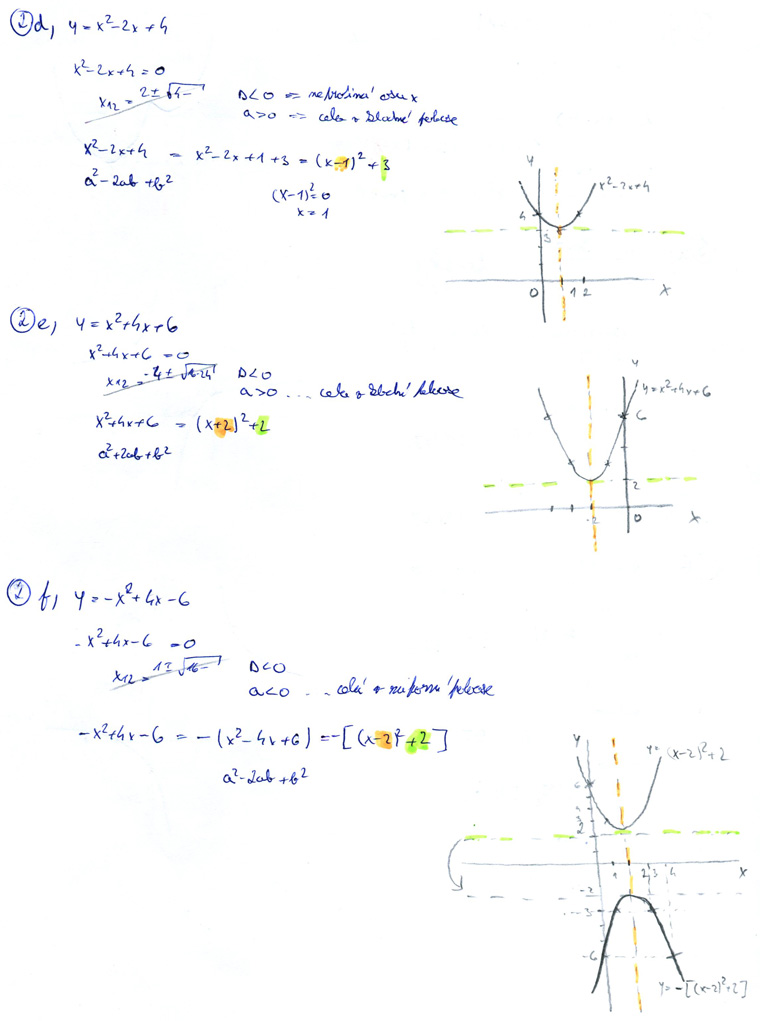 2 d, y = x²-2x+4
x²-2x+4 = 0
x₁₂ = 2± √4-
D<0 = neprotíná osu x
a>0 = celá v kladné polorose
x²-2x+4 = x²-2x+1+3 = (x-1)²+3
a²-2ab+b²
(x-1)²=0
x = 1
y
x²-2x+4
4
3
0 1 2 x
2 e, y = x²+4x+6
x²+4x+6 = 0
D<0
a>0 ... celá v kladné polorose
x²+4x+6 = (x+2)²+2
a²+2ab+b²
y
y=x²+4x+6
6
2
-2 0 x
2 f, y = -x²+4x-6
-x²+4x-6 = 0
D<0
a<0 ... celá v záporné polorose
-x²+4x-6 = -(x²-4x+6) = -[(x-2)²+2]
a²-2ab+b²
y
y=(x-2)²+2
6
3
2
1 2 3 4 x
-2
-3
-6
y=-[(x-2)²+2]